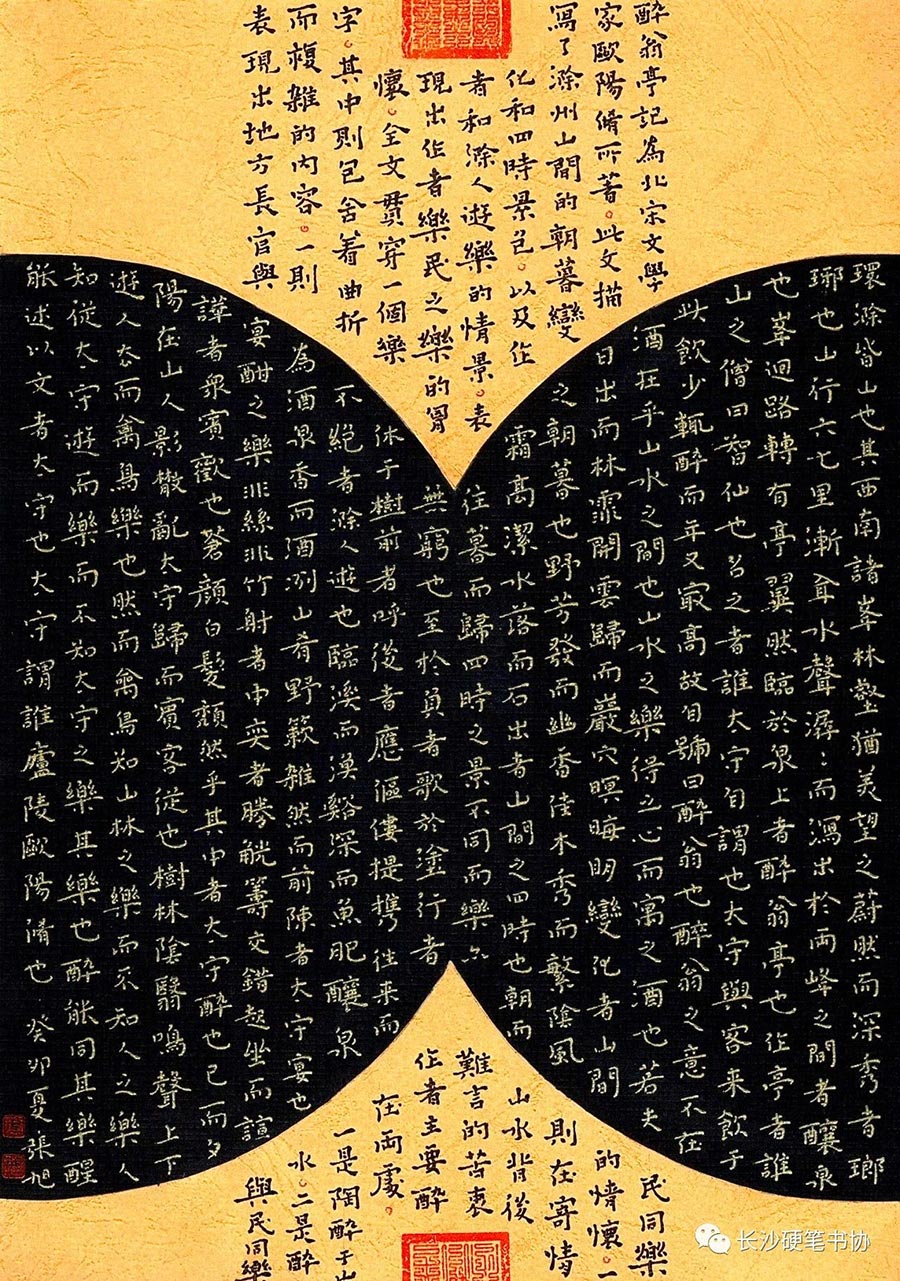 醉翁亭記為北宋文學
家歐陽脩所著。此文描
寫了滁州山間的朝暮變
化和四時景色。以及作
者和滁人遊樂的情景。表
現出作者樂民之樂的胷
懷。全文貫穿一個樂
字。其中則包含着曲折
而複雜的內容。一則
表現出地方長官與
民同樂
的情懷。一
則在寄情
山水背後
難言的苦衷
作者主要醉
在兩處。
一是陶醉于山
水。二是醉
與民同樂
環滁皆山也其西南諸峯林壑猶美望之蔚然而深秀者瑯
琊也山行六七里漸聞水聲潺〻而瀉出於兩峰之間者釀泉
也峯迴路轉有亭翼然臨於泉上者醉翁亭也作亭者誰
山之僧曰智仙也名之者誰太守自謂也太守與客来飲于
此飲少輒醉而年又最高故自號曰醉翁也醉翁之意不在
酒在乎山水之間也山水之樂得之心而寓之酒也若夫
日出而林霏開雲歸而巖穴暝晦明變化者山間
之朝暮也野芳發而幽香佳木秀而繁陰風
霜高潔水落而石出者山間之四時也朝而
往暮而歸四時之景不同而樂亦
無窮也至於負者歌於塗行者
休于樹前者呼後者應傴僂提攜往来而
不絕者滁人遊也臨溪而漁谿深而魚肥釀泉
為酒泉香而酒冽山肴野蔌雜然而前陳者太守宴也
宴酣之樂非絲非竹射者中奕者勝觥籌交錯起坐而諠
譁者衆賓歡也蒼顏白髮頹然乎其中者太守醉也已而夕
陽在山人影散亂太守歸而賓客從也樹林陰翳鳴聲上下
遊人去而禽鳥樂也然而禽鳥知山林之樂而不知人之樂人
知從太守遊而樂而不知太守之樂其樂也醉能同其樂醒
能述以文者太守也太守謂誰廬陵歐陽脩也 癸卯夏張旭
长沙硬笔书协